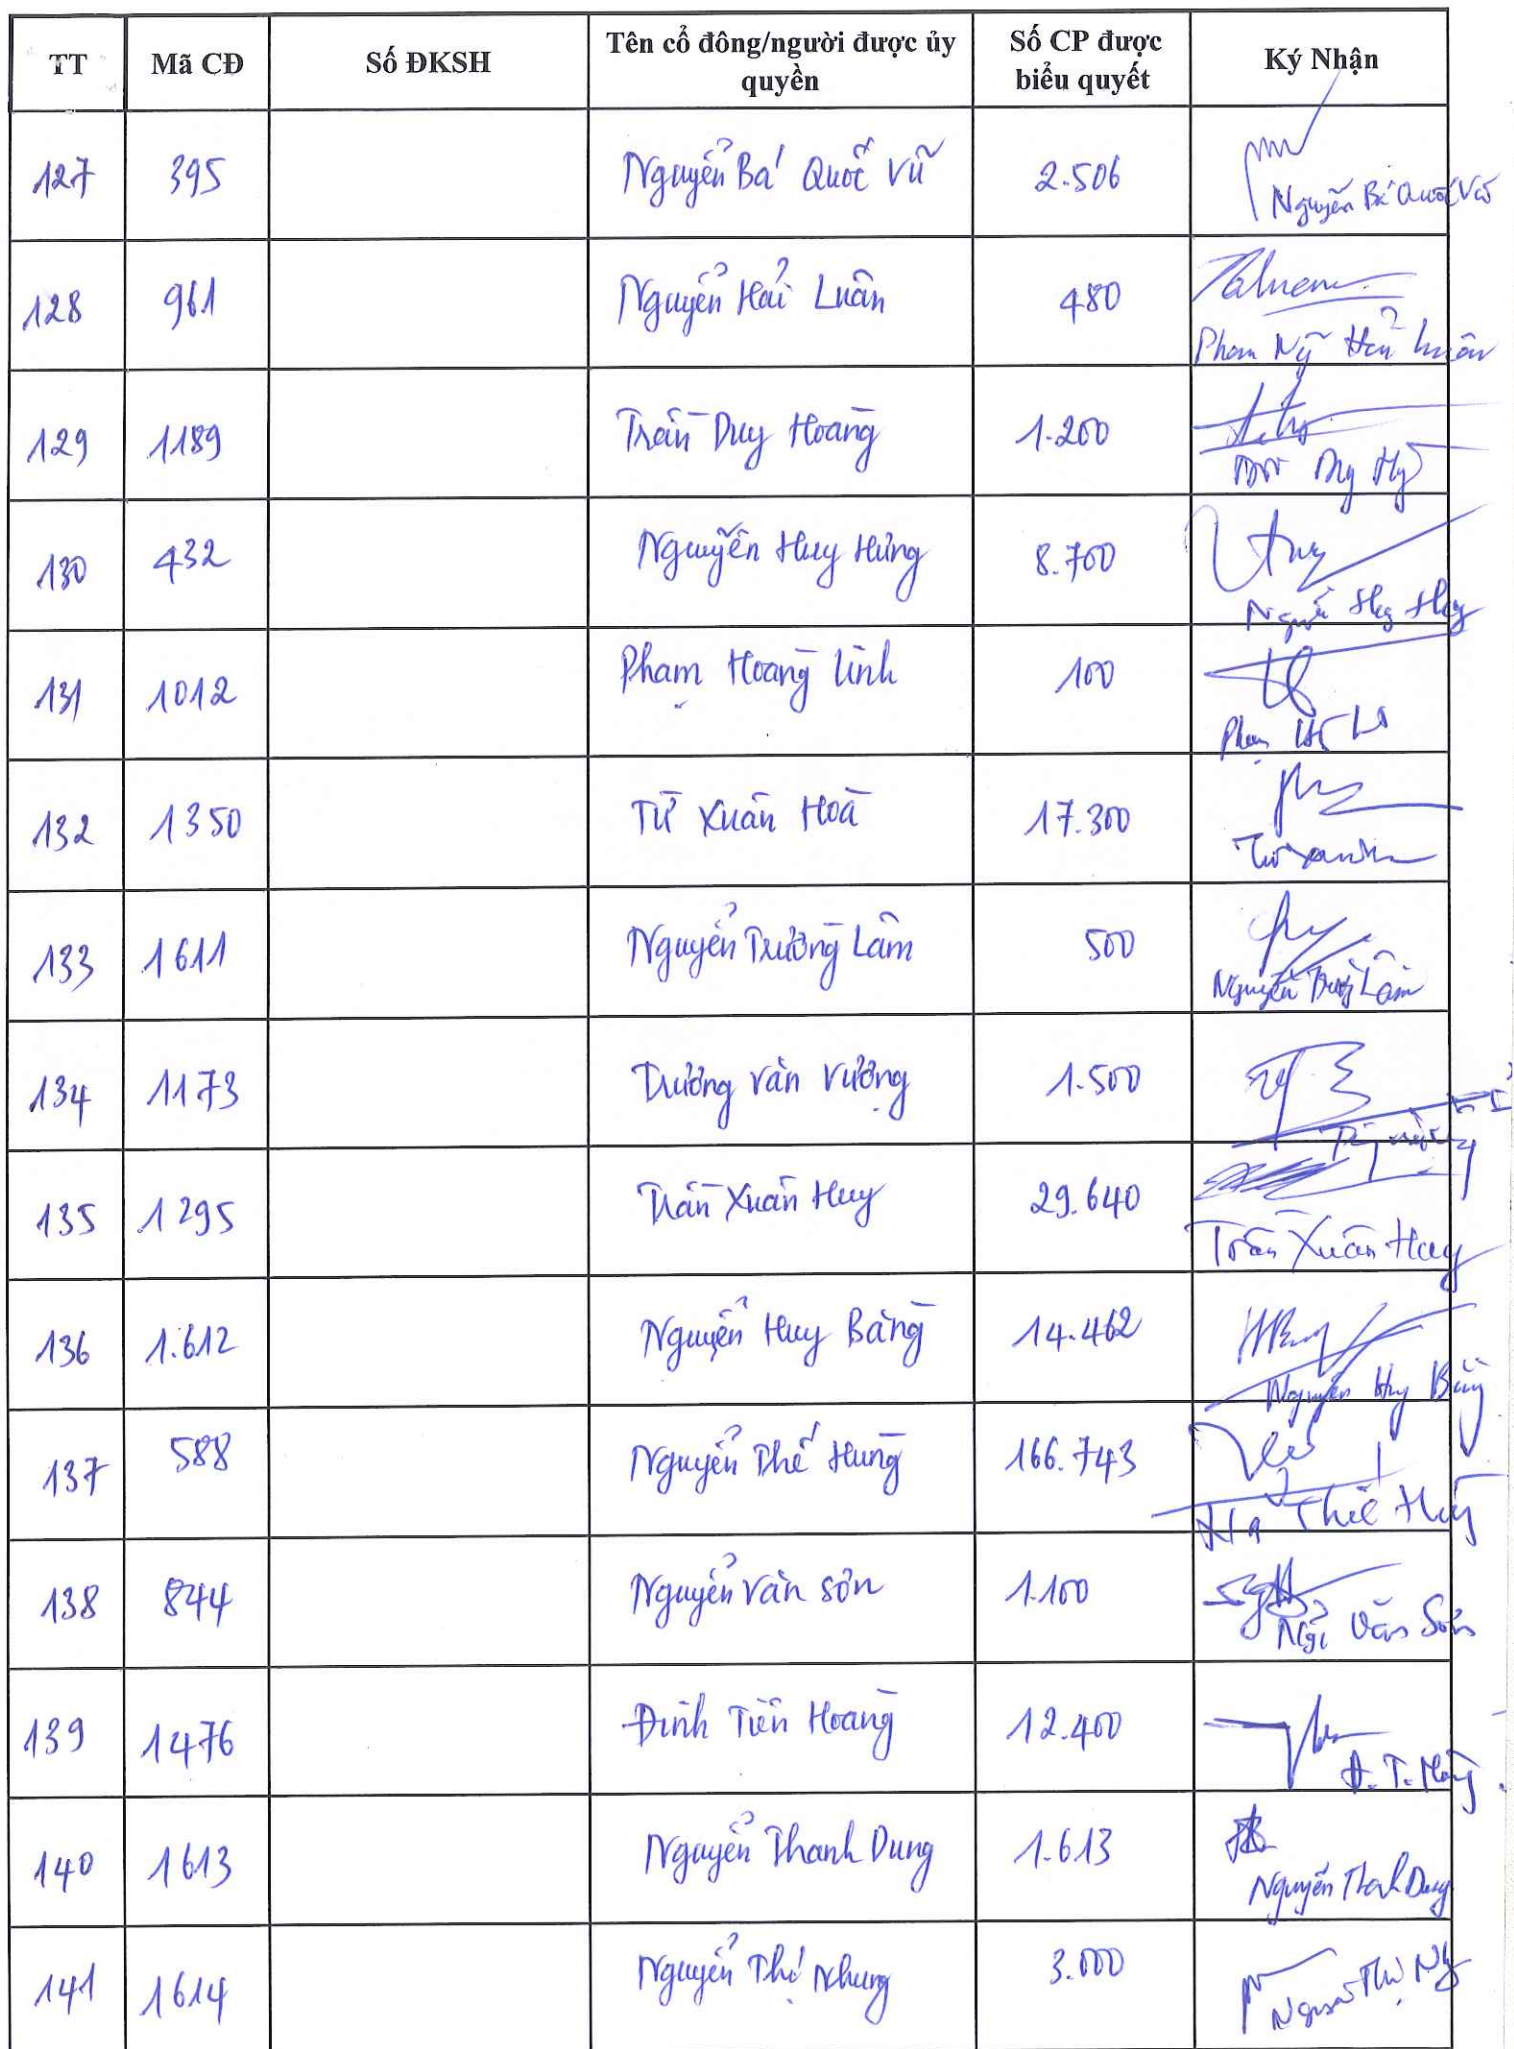 TT Mã CĐ Số ĐKSH Tên cổ đông/người được ủy quyền Số CP được biểu quyết Ký Nhận
127 395 Nguyễn Bá Quốc Vũ 2.506 Nguyễn Bá Quốc Vũ
128 961 Nguyễn Hải Luân 480 Luân
129 1189 Trần Duy Hoàng 1.200
130 432 Nguyễn Huy Hưng 8.700 Nguyễn Huy
131 1012 Phạm Hoàng Linh 100 Phạm
132 1350 Từ Xuân Hoà 17.300 Từ
133 1611 Nguyễn Trường Lâm 500 Nguyễn Trường Lâm
134 1173 Trương Văn Vượng 1.500
135 1295 Trần Xuân Huy 29.640 Trần Xuân Huy
136 1.612 Nguyễn Huy Bằng 14.462 Nguyễn Huy Bằng
137 588 Nguyễn Thế Hùng 166.743 Thế Hùng
138 844 Nguyễn Văn Sơn 1.100 Văn Sơn
139 1476 Đinh Tiến Hoàng 12.400 Đ.T. Hoàng
140 1613 Nguyễn Thanh Dung 1.613 Nguyễn Thanh Dung
141 1614 Nguyễn Thị Nhung 3.000 Nguyễn Thị